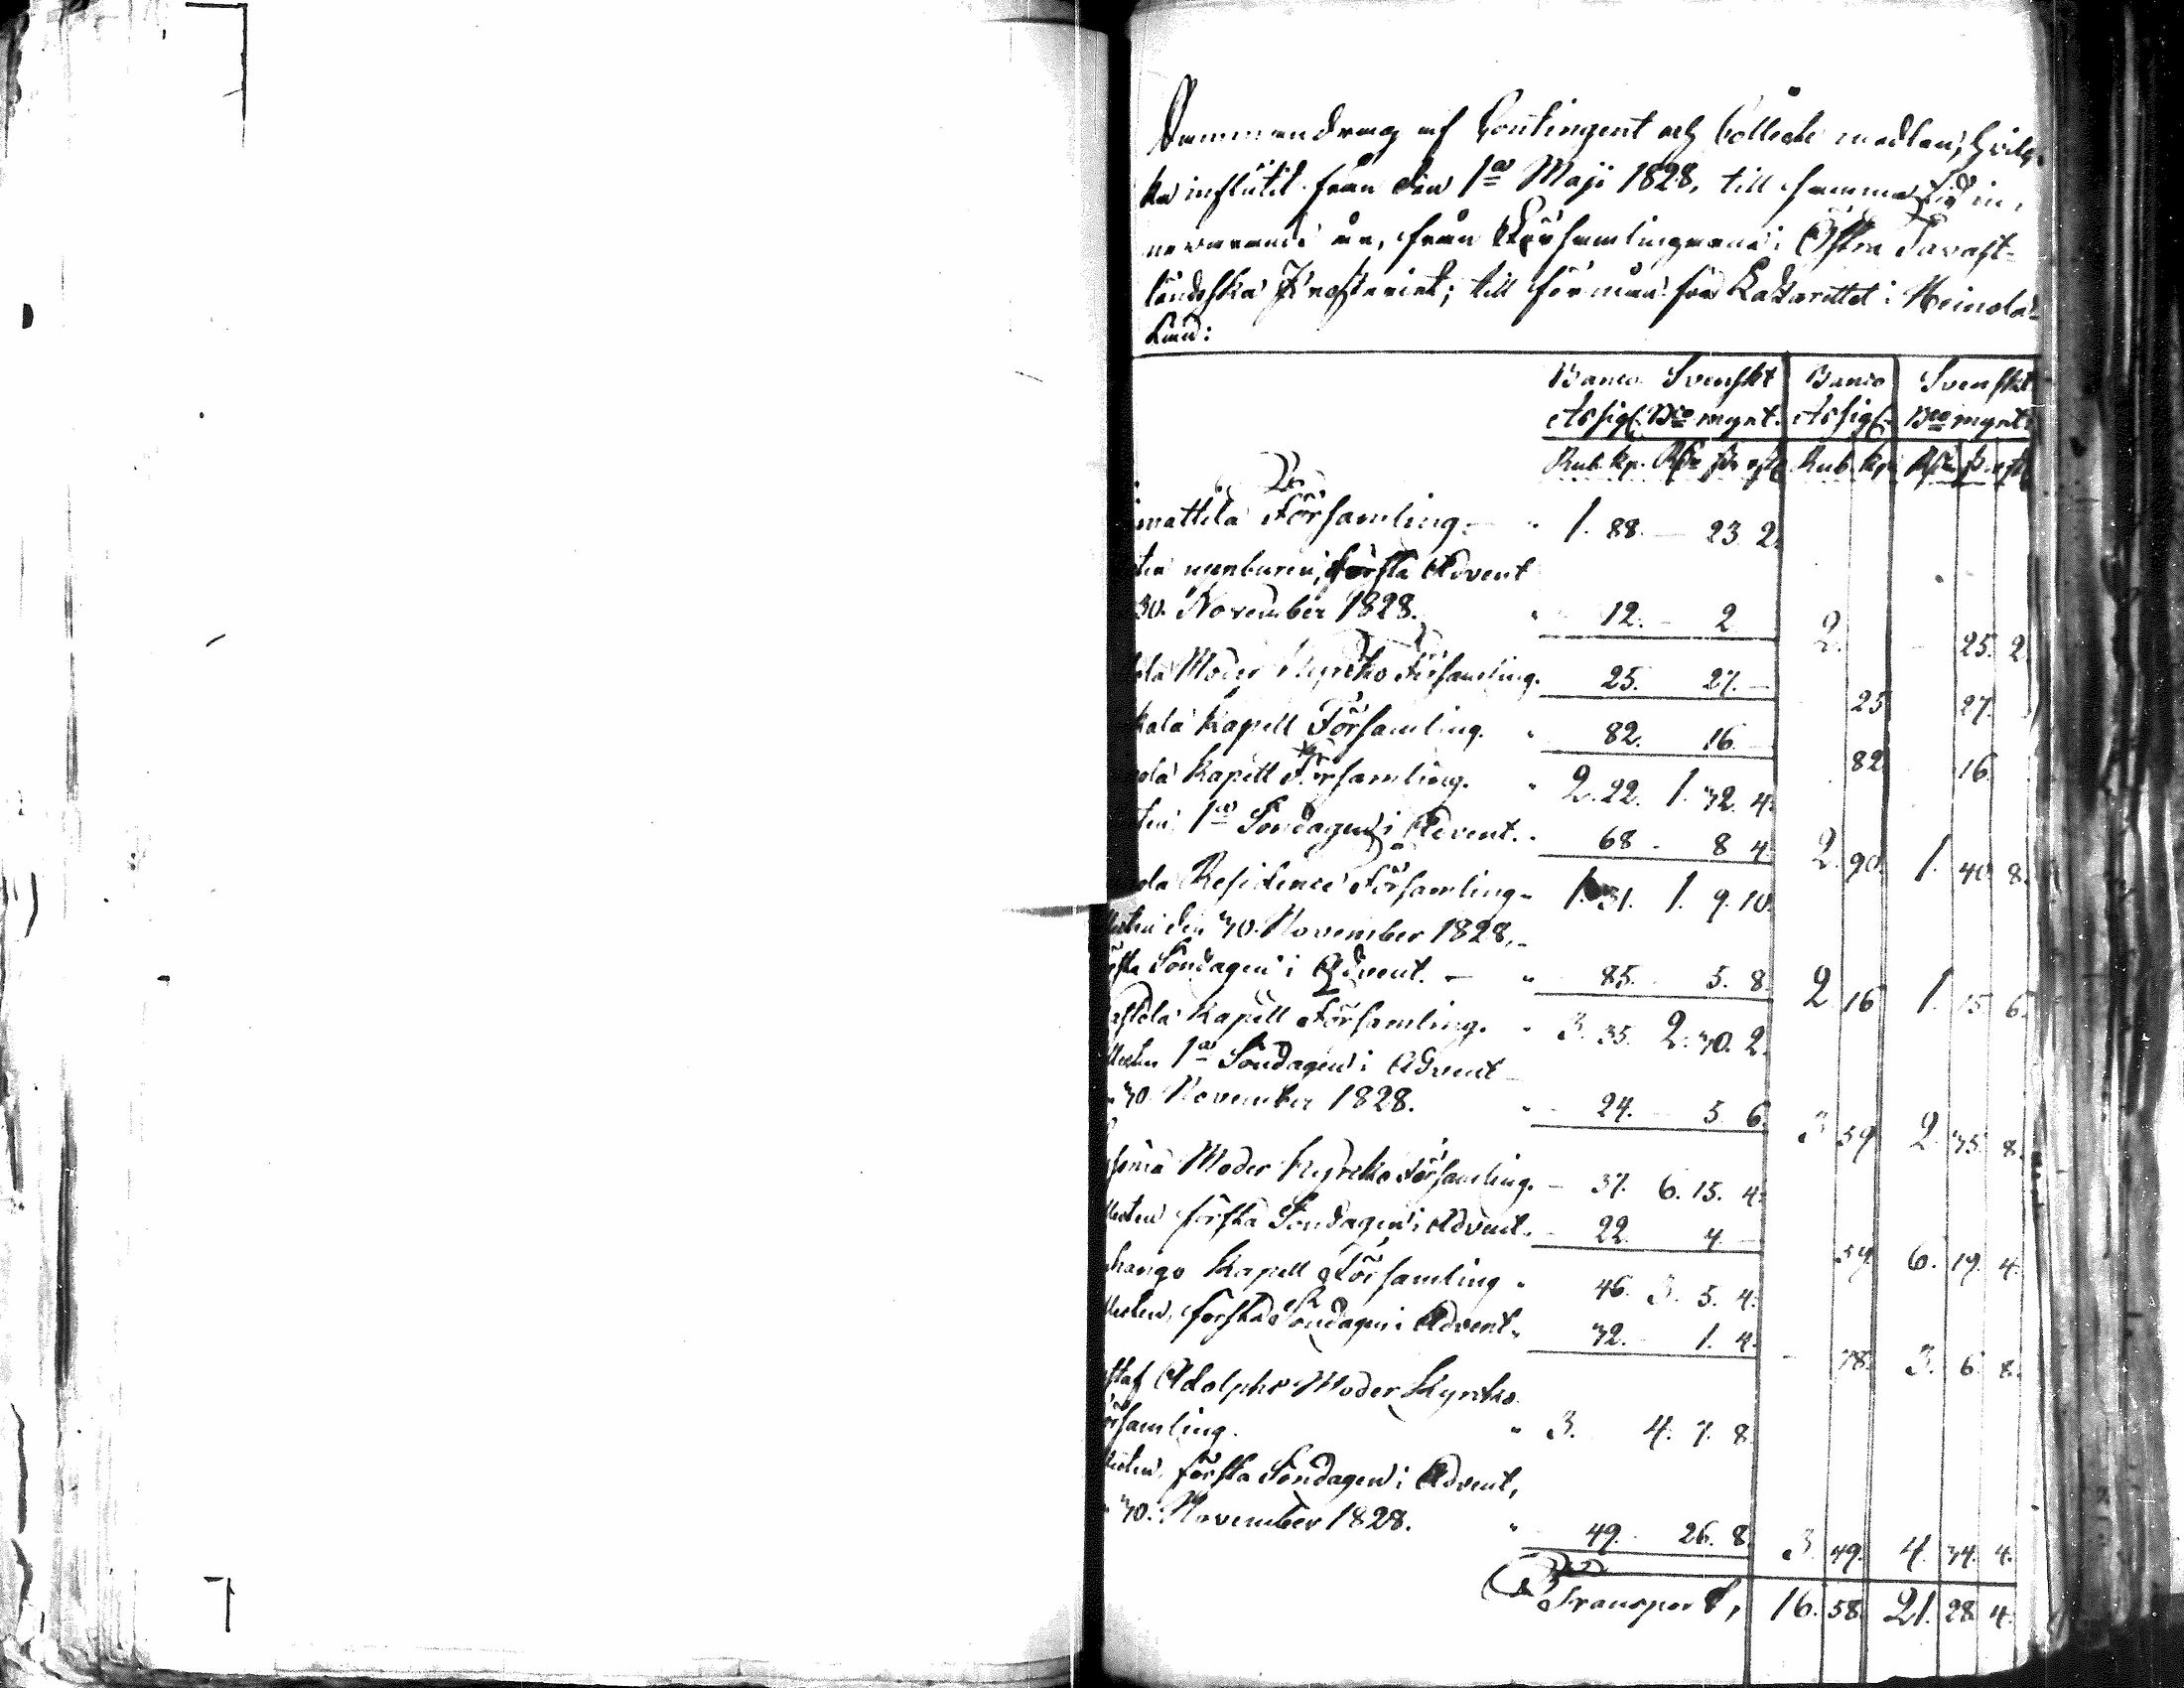 Sammandrag af Contingent och Collecte medlen, hvilc-
ka influtit från den 1a Maji 1828, till samma tid in-
nevarande år, från Församlingarne i Östra Tavast-
ländska Prosteriet; till förmån för Lazarettet i Heinola
Stad:
Banco Svenskt Banco Svenskt
Assign. Bco mynt. Assign. Bco mynt.
Rub. kp. Rdr s. rst. Rub. kp. Rdr s. rst.
mattila Församling. 1. 88. — 23 2.
ten uppburen, första Advent
30. November 1828. 12. — 2 2. — 25. 2.
ola Moder Kyrcko Församling. 25. 27. — 25 27.
kala Kapell Församling. 82. 16. — 82. 16.
ola Kapell Församling. 2. 22. 1. 32. 4.
ten 1a Söndagen i Advent. 68 - 8 4. 2. 90. 1. 40. 8.
ola Residence Församling 1. 31. 1. 9. 10.
lecten den 30. November 1828,
rsta Söndagen i Advent. — 85. 5. 8. 2 16 1. 15 6.
astola Kapell Församling. 3. 35. 2. 30. 2.
llecten 1a Söndagen i Advent
30. November 1828. 24. 5. 6. 3 59 2. 35. 8.
Moder Kyrcko Församling. — 37. 6. 15. 4.
llecten första Söndagen i Advent. 22. 4. — 59. 6. 19. 4.
hango Kapell Församling 46. 3. 5. 4.
llecten, första Söndagen i Advent. 32. 1. 4. — 78. 3. 6. 8.
staf Adolphs Moder Kyrcko
örsamling. 3. 4. 7. 8.
lecten, första Söndagen i Advent,
30. November 1828. 49. 26. 8. 3. 49. 4. 34. 4.
Transport, 16. 58. 21. 28. 4.